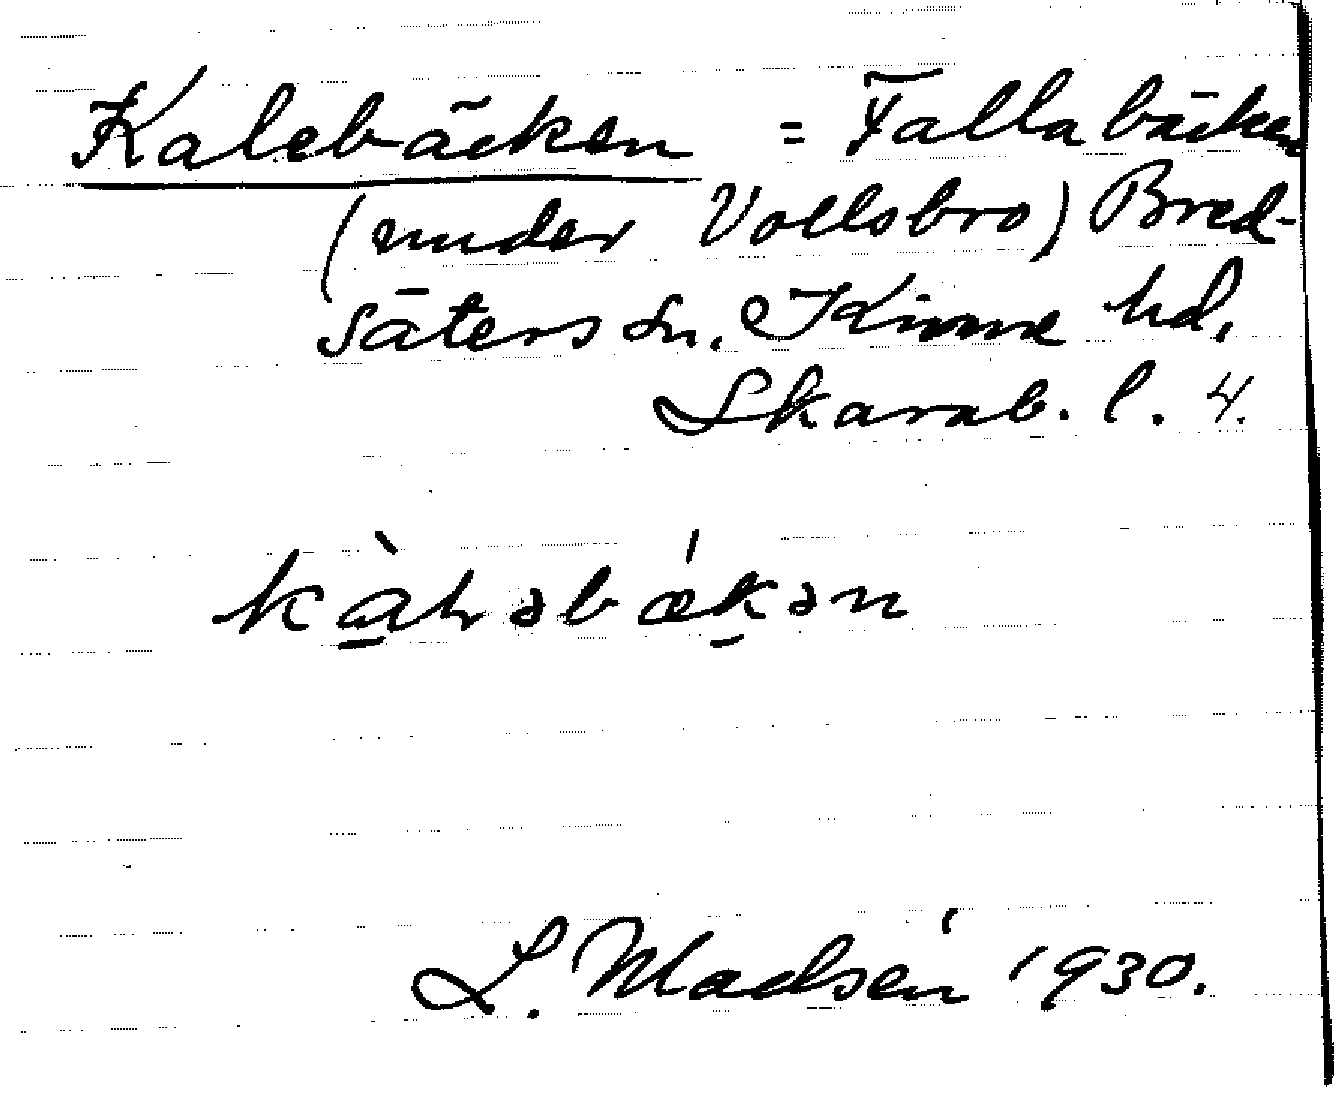 Kalebäcken = Fallabäcken
(under Vollsbro) Bred-
säters sn. Kinne hd.
Skarab. l. 4.
L. Madsén 1930.